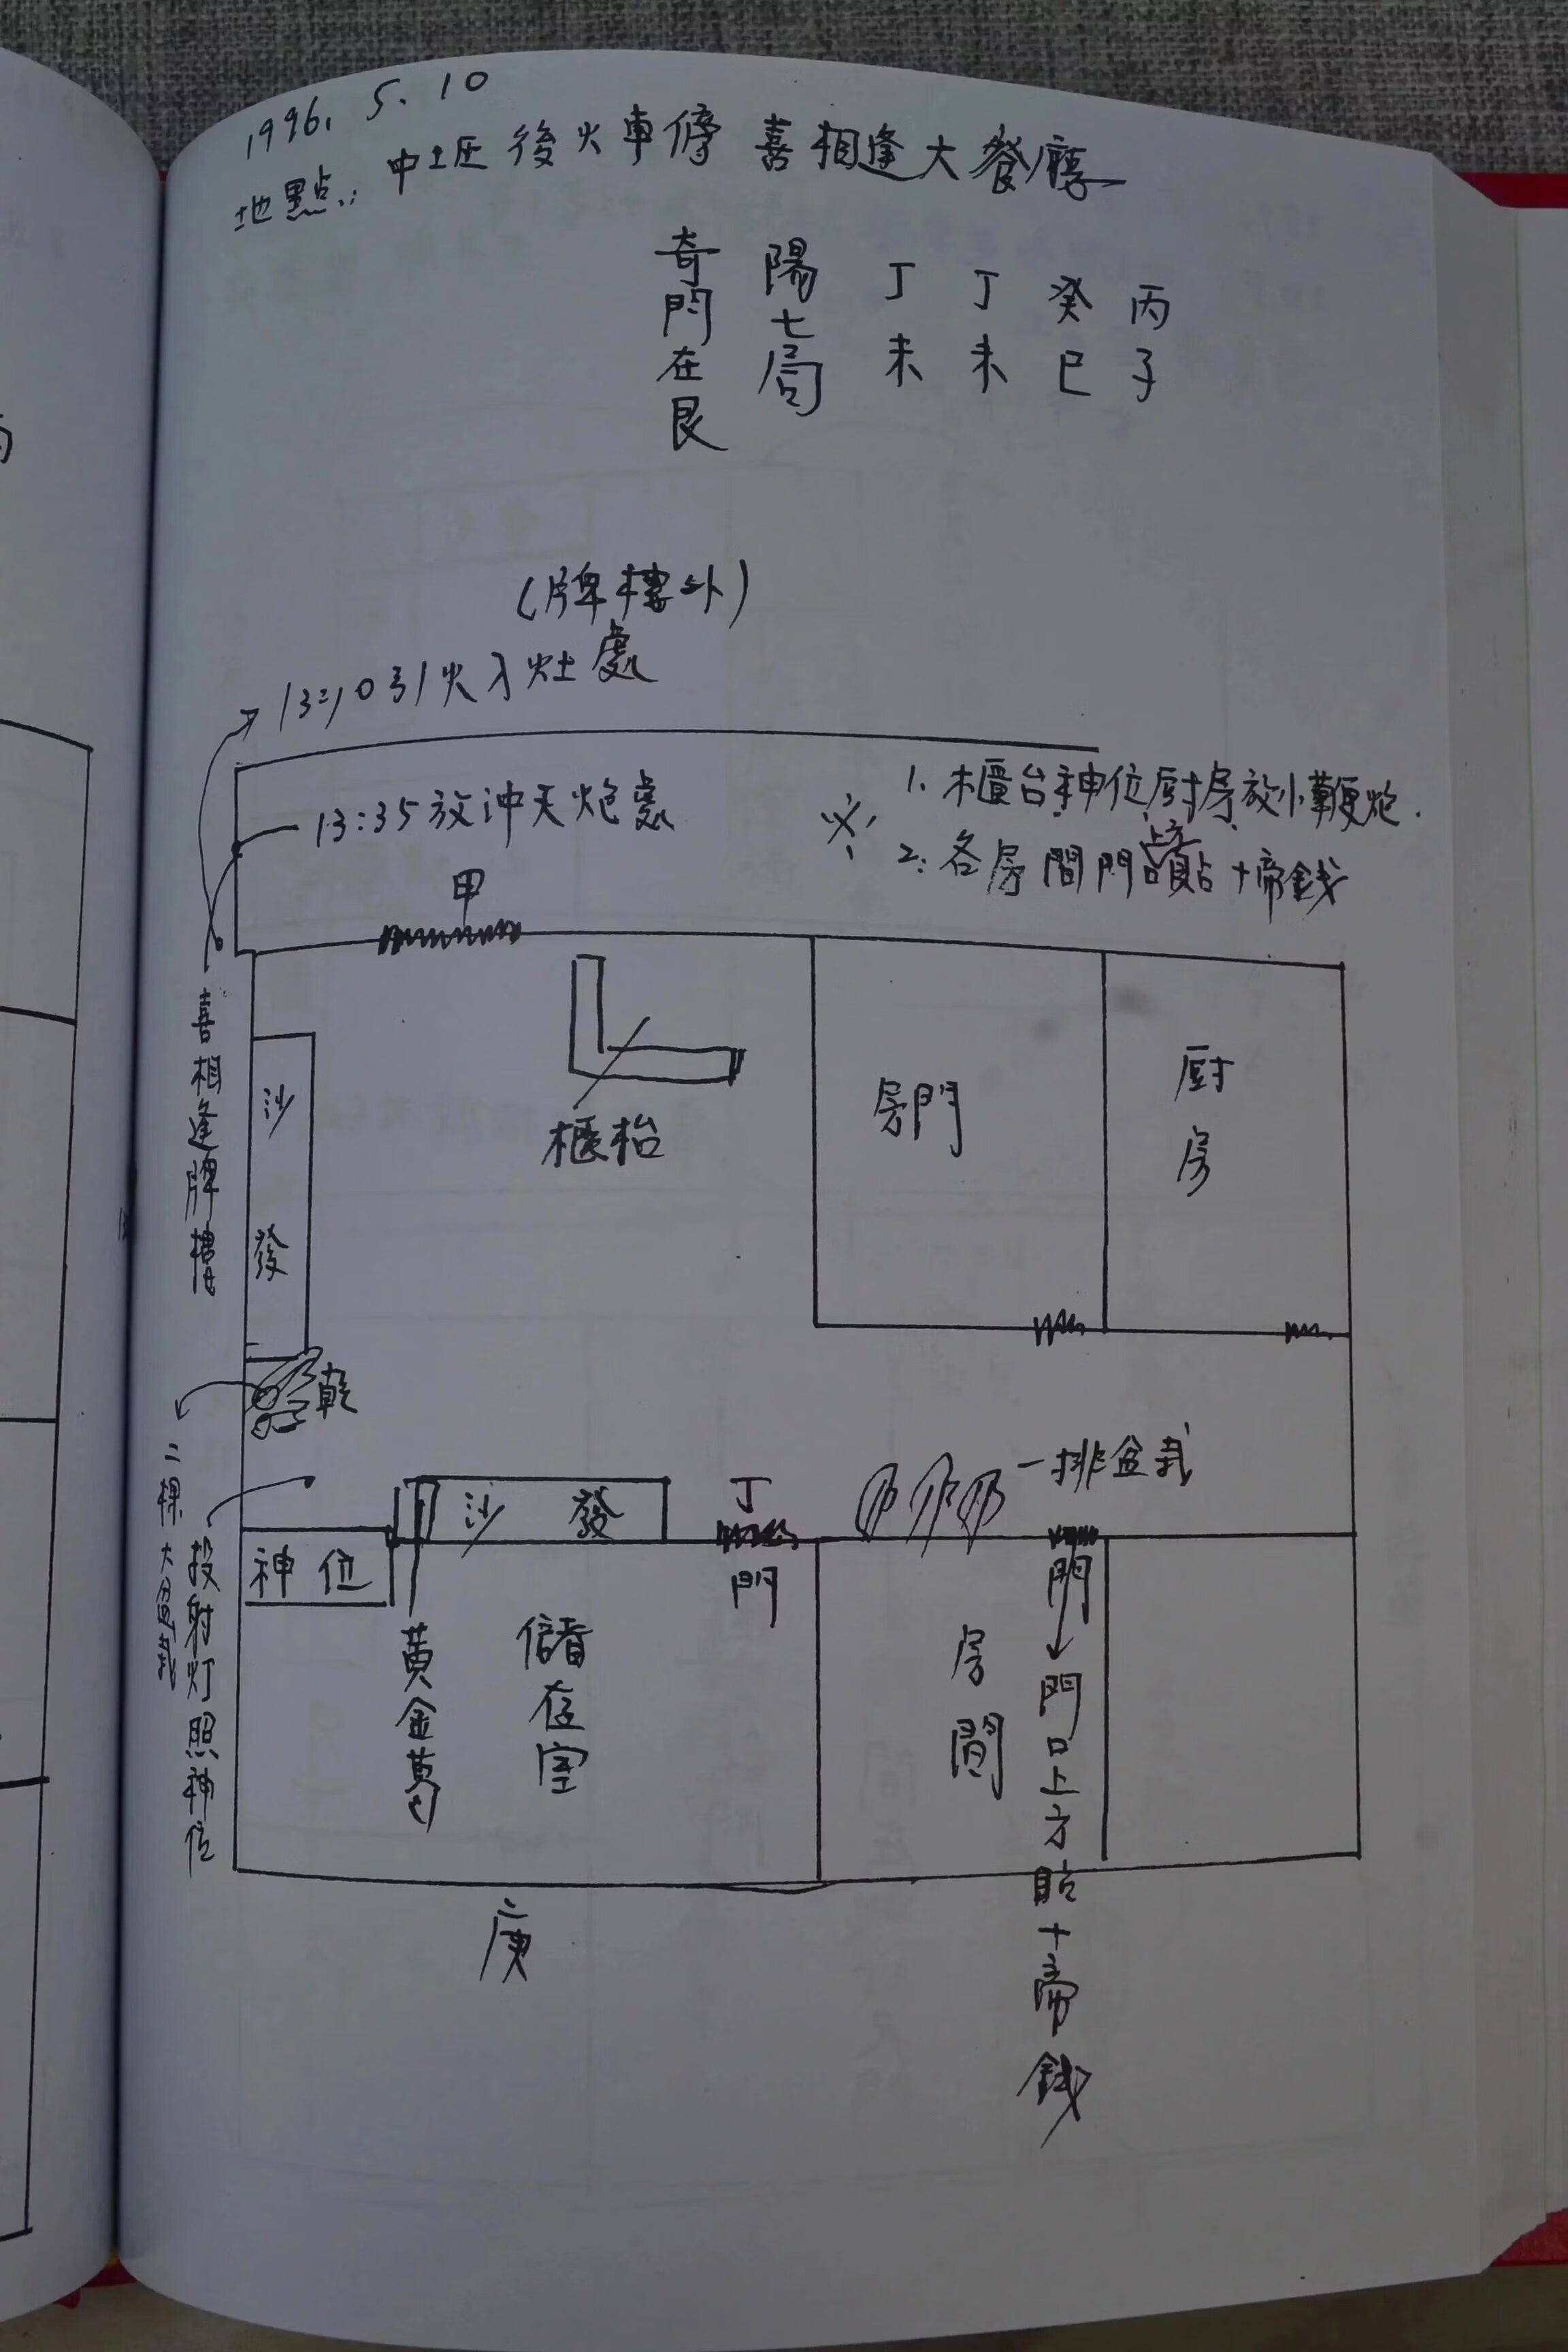 1996. 5. 10
地點: 中圵后火車停 喜相逢大餐廳
丙子
癸巳
丁未
丁未
陽七局
奇門在艮
(牌樓外)
13:10引火入灶處
13:35放冲天炮處
※ 1. 櫃台神位厨房放小鞭炮.
2. 各房間門貼十帝錢
甲
喜相逢牌樓
沙發
櫃枱
房門
厨房
乾
二棵大盆栽
投射灯照神位
神位
沙發
丁
門
一排盆栽
黃金葛
儲存室
房間
門→門口上方貼十帝錢
庚